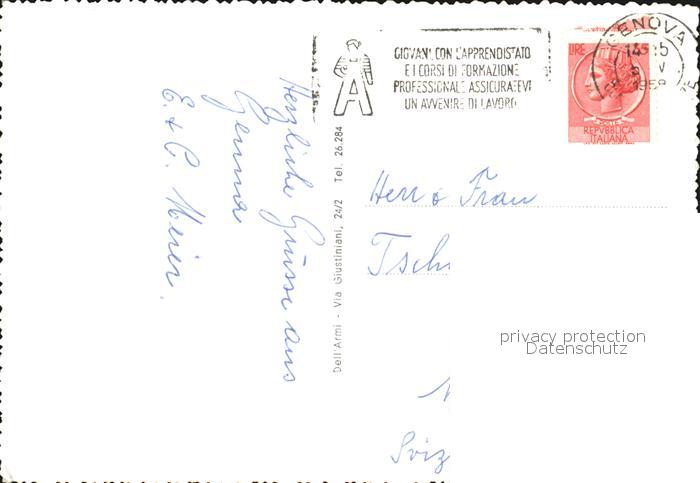 GIOVANI CON L'APPRENDISTATO
E I CORSI DI FORMAZIONE
PROFESSIONALE ASSICURATEVI
UN AVVENIRE DI LAVORO
A
GENOVA
1958
LIRE
POSTE
REPVBBLICA
ITALIANA
Herzliche Grüsse aus
Genua
E. & C. Meier.
Dell'Armi - Via Giustiniani, 24/2 Tel. 26.284
Herr & Frau
Tsch
Sviz
privacy protection
Datenschutz